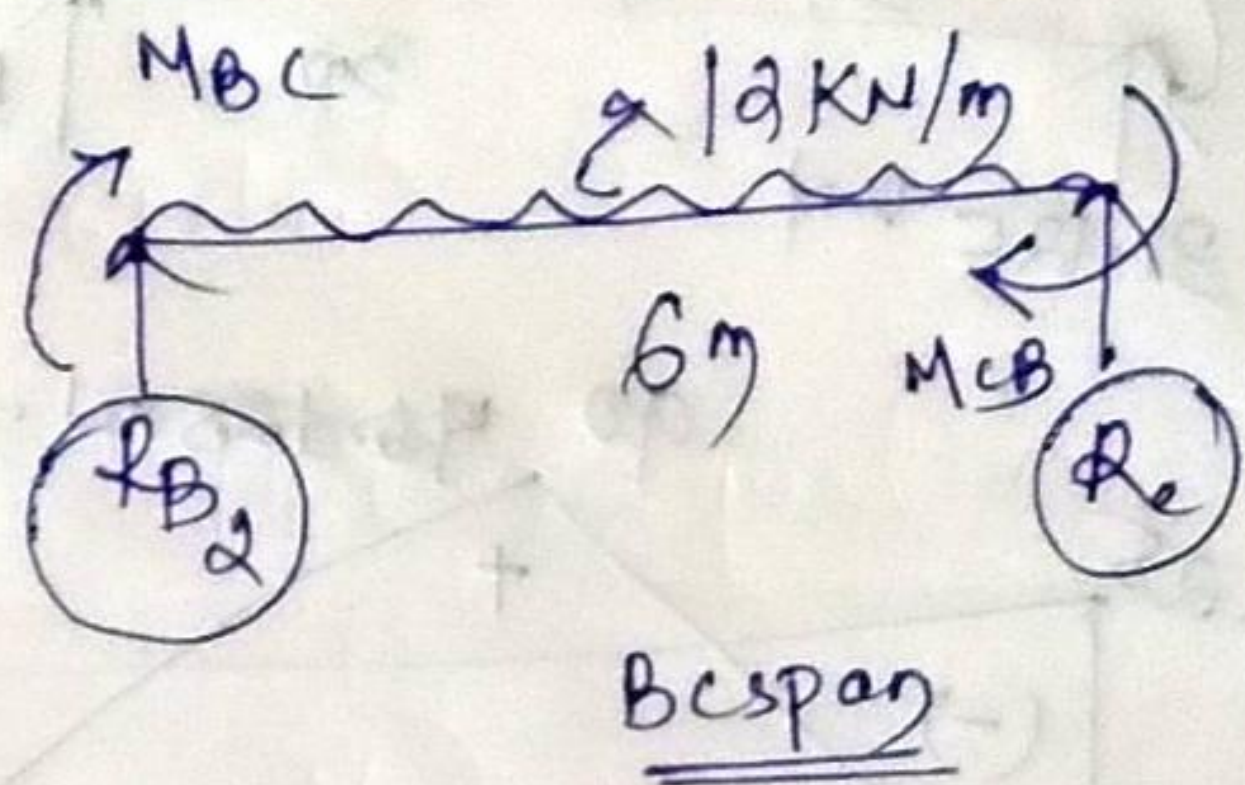 MBC
12 KN/m
6m
MCB
RB2
Rc
BC span